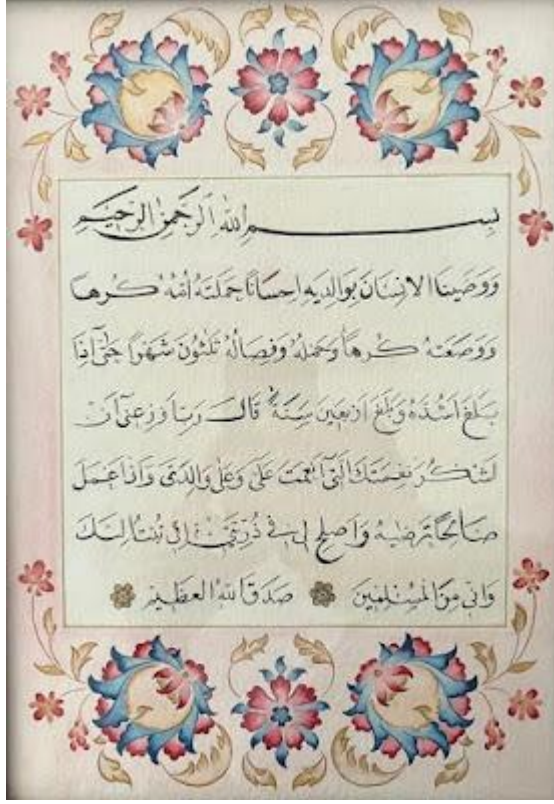 بسم الله الرَّحمٰن الرَّحيم
وَوَصَّيْنَا الْاِنْسَانَ بِوَالِدَيْهِ اِحْسَانًا حَمَلَتْهُ اُمُّهُ كُرْهًا
وَوَضَعَتْهُ كُرْهًا وَحَمْلُهُ وَفِصَالُهُ ثَلٰثُونَ شَهْرًا حَتّٰٓى اِذَا
بَلَغَ اَشُدَّهُ وَبَلَغَ اَرْبَعِينَ سَنَةً قَالَ رَبِّ اَوْزِعْنِٓى اَنْ
اَشْكُرَ نِعْمَتَكَ الَّتِٓى اَنْعَمْتَ عَلَىَّ وَعَلٰى وَالِدَىَّ وَاَنْ اَعْمَلَ
صَالِحًا تَرْضٰيهُ وَاَصْلِحْ لِى فِى ذُرِّيَّتِى اِنِّى تُبْتُ اِلَيْكَ
وَاِنِّى مِنَ الْمُسْلِمِينَ صَدَقَ اللهُ الْعَظِيم